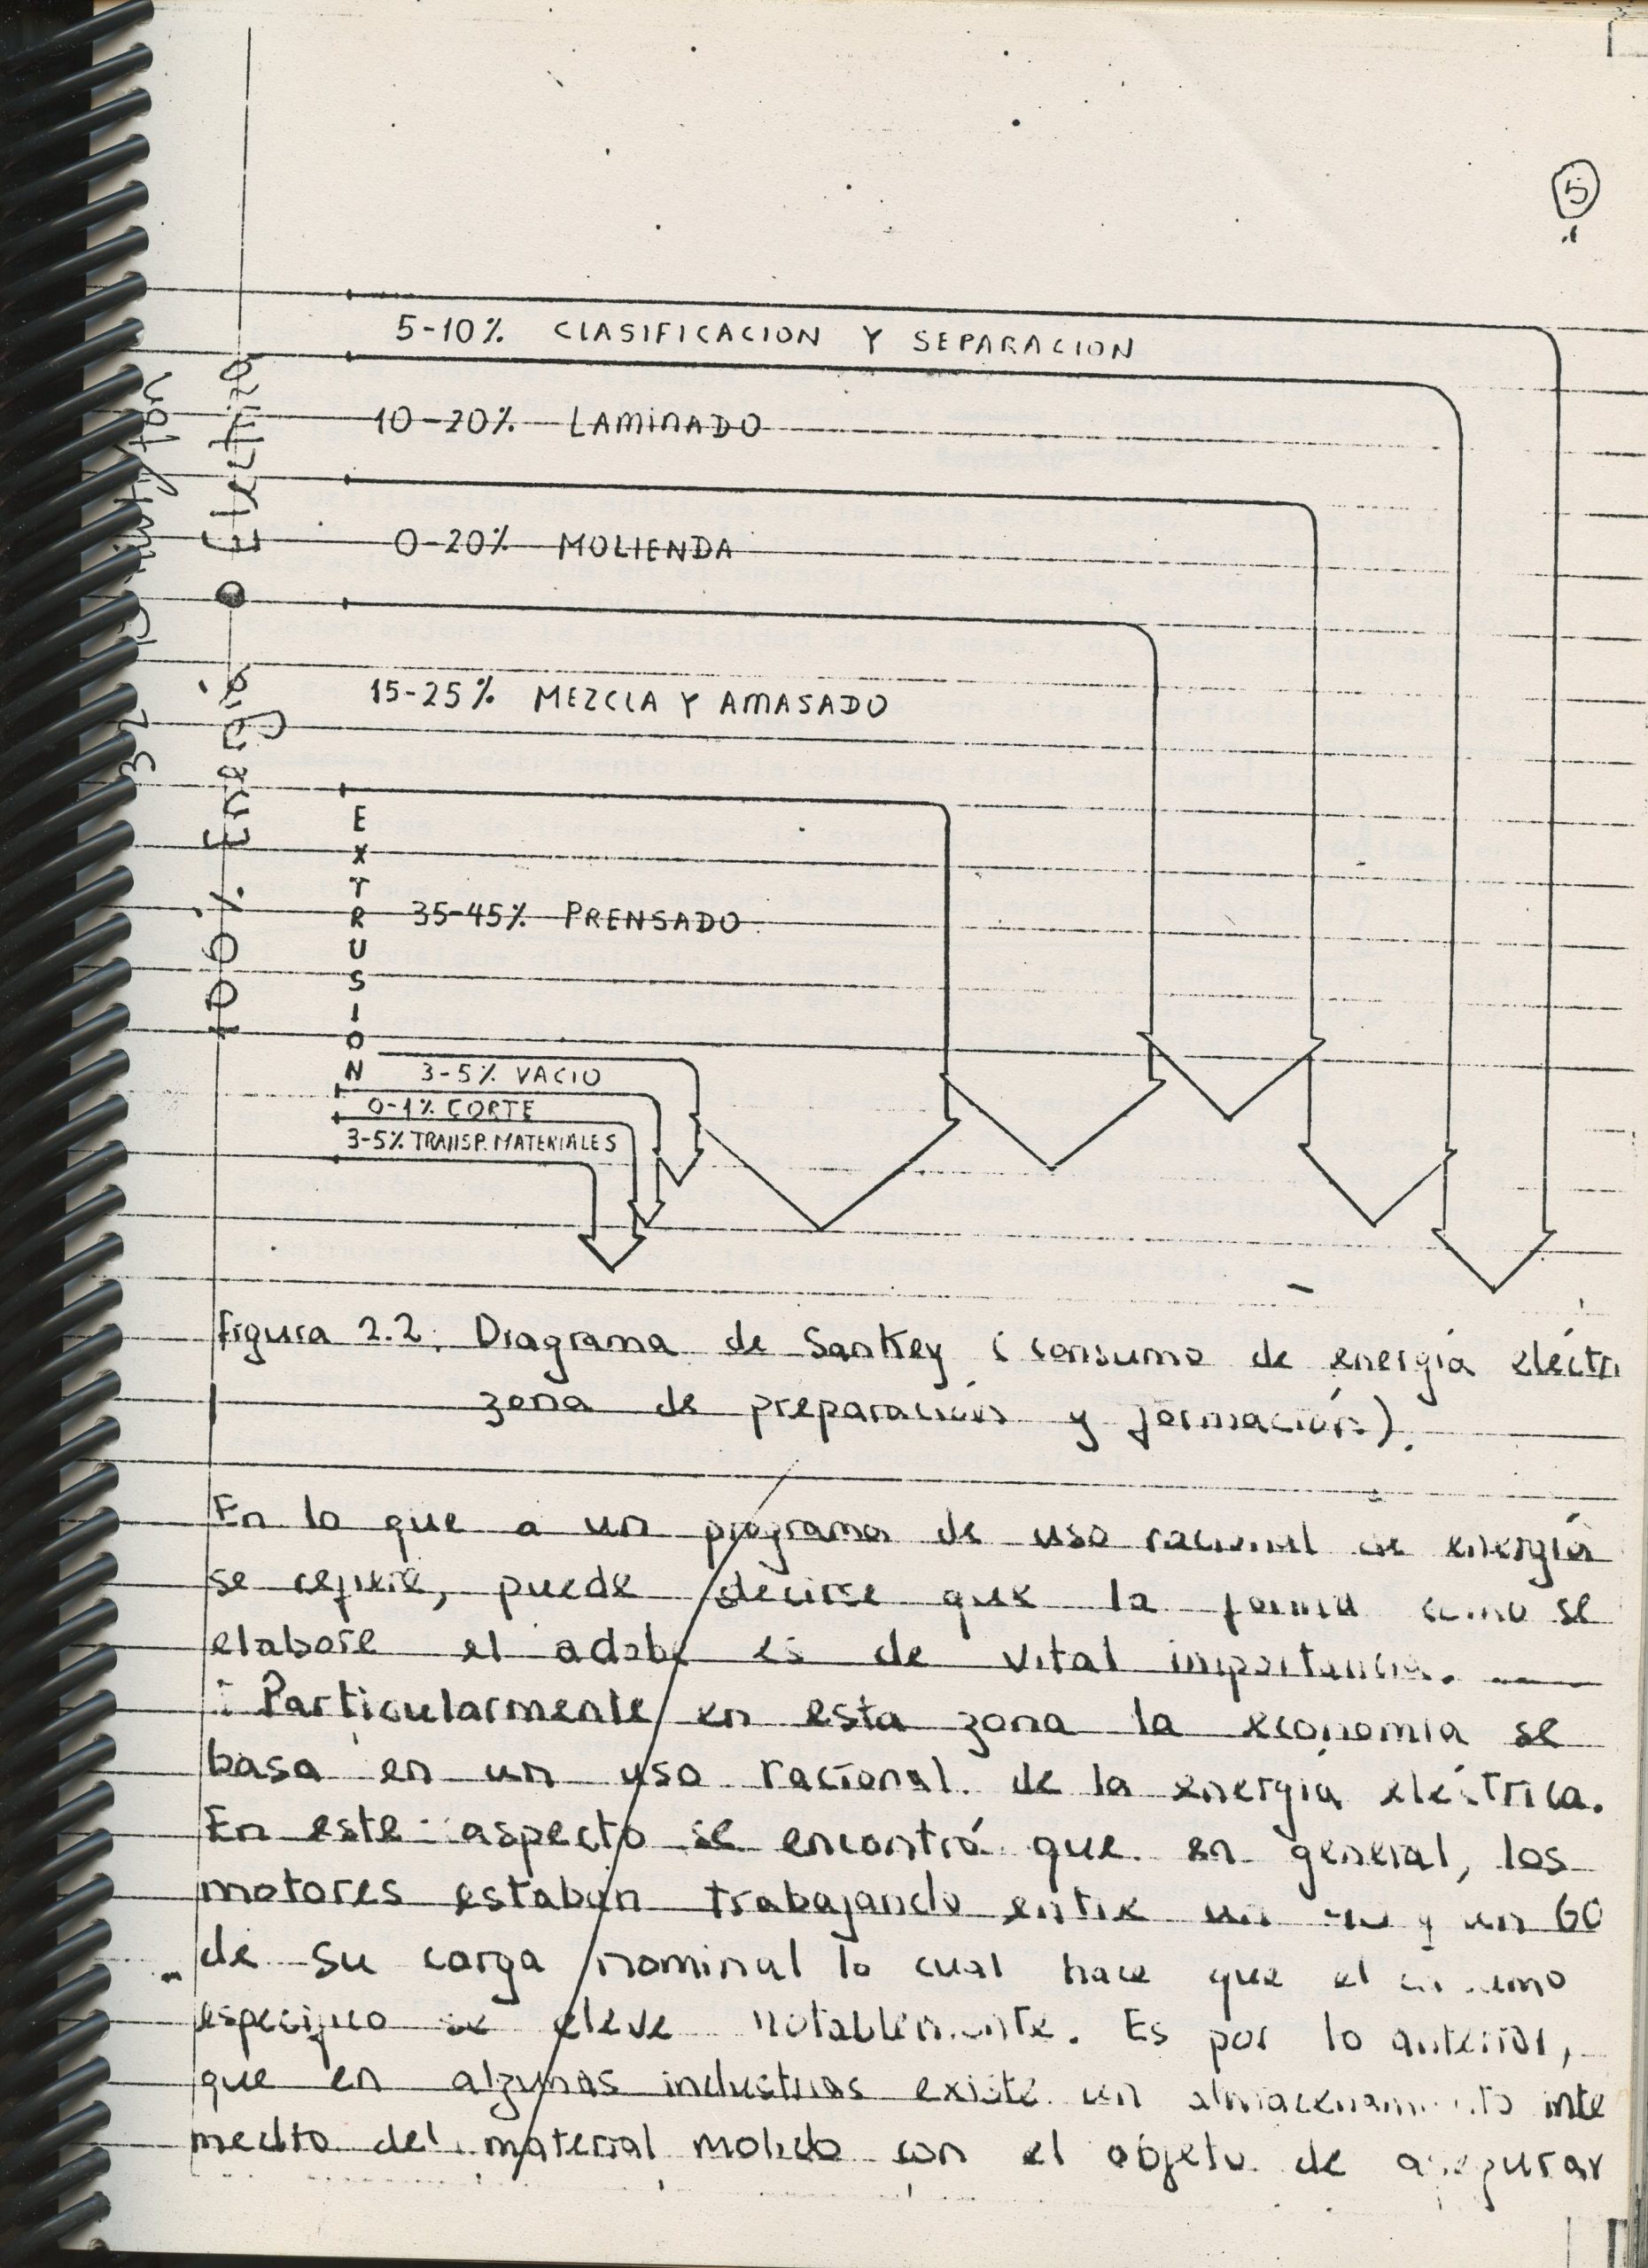 5
5-10% CLASIFICACION Y SEPARACION
10-20% LAMINADO
0-20% MOLIENDA
15-25% MEZCLA Y AMASADO
100% Energía Electrica
EXTRUSION
35-45% PRENSADO
3-5% VACIO
0-1% CORTE
3-5% TRANSP. MATERIALES
figura 2.2. Diagrama de Sankey (consumo de energía eléctri
zona de preparación y formación).
En lo que a un programa de uso racional de energía
se refiere, puede decirse que la forma como se
elabore el adobe es de vital importancia.
Particularmente en esta zona la economía se
basa en un uso racional de la energía eléctrica.
En este aspecto se encontró que en general, los
motores estaban trabajando entre un y un 60
de su carga nominal lo cual hace que el
especifico se eleve notablemente. Es por lo anterior,
que en algunas industrias existe un almacenamiento inte
medio del material molido con el objeto de asegurar